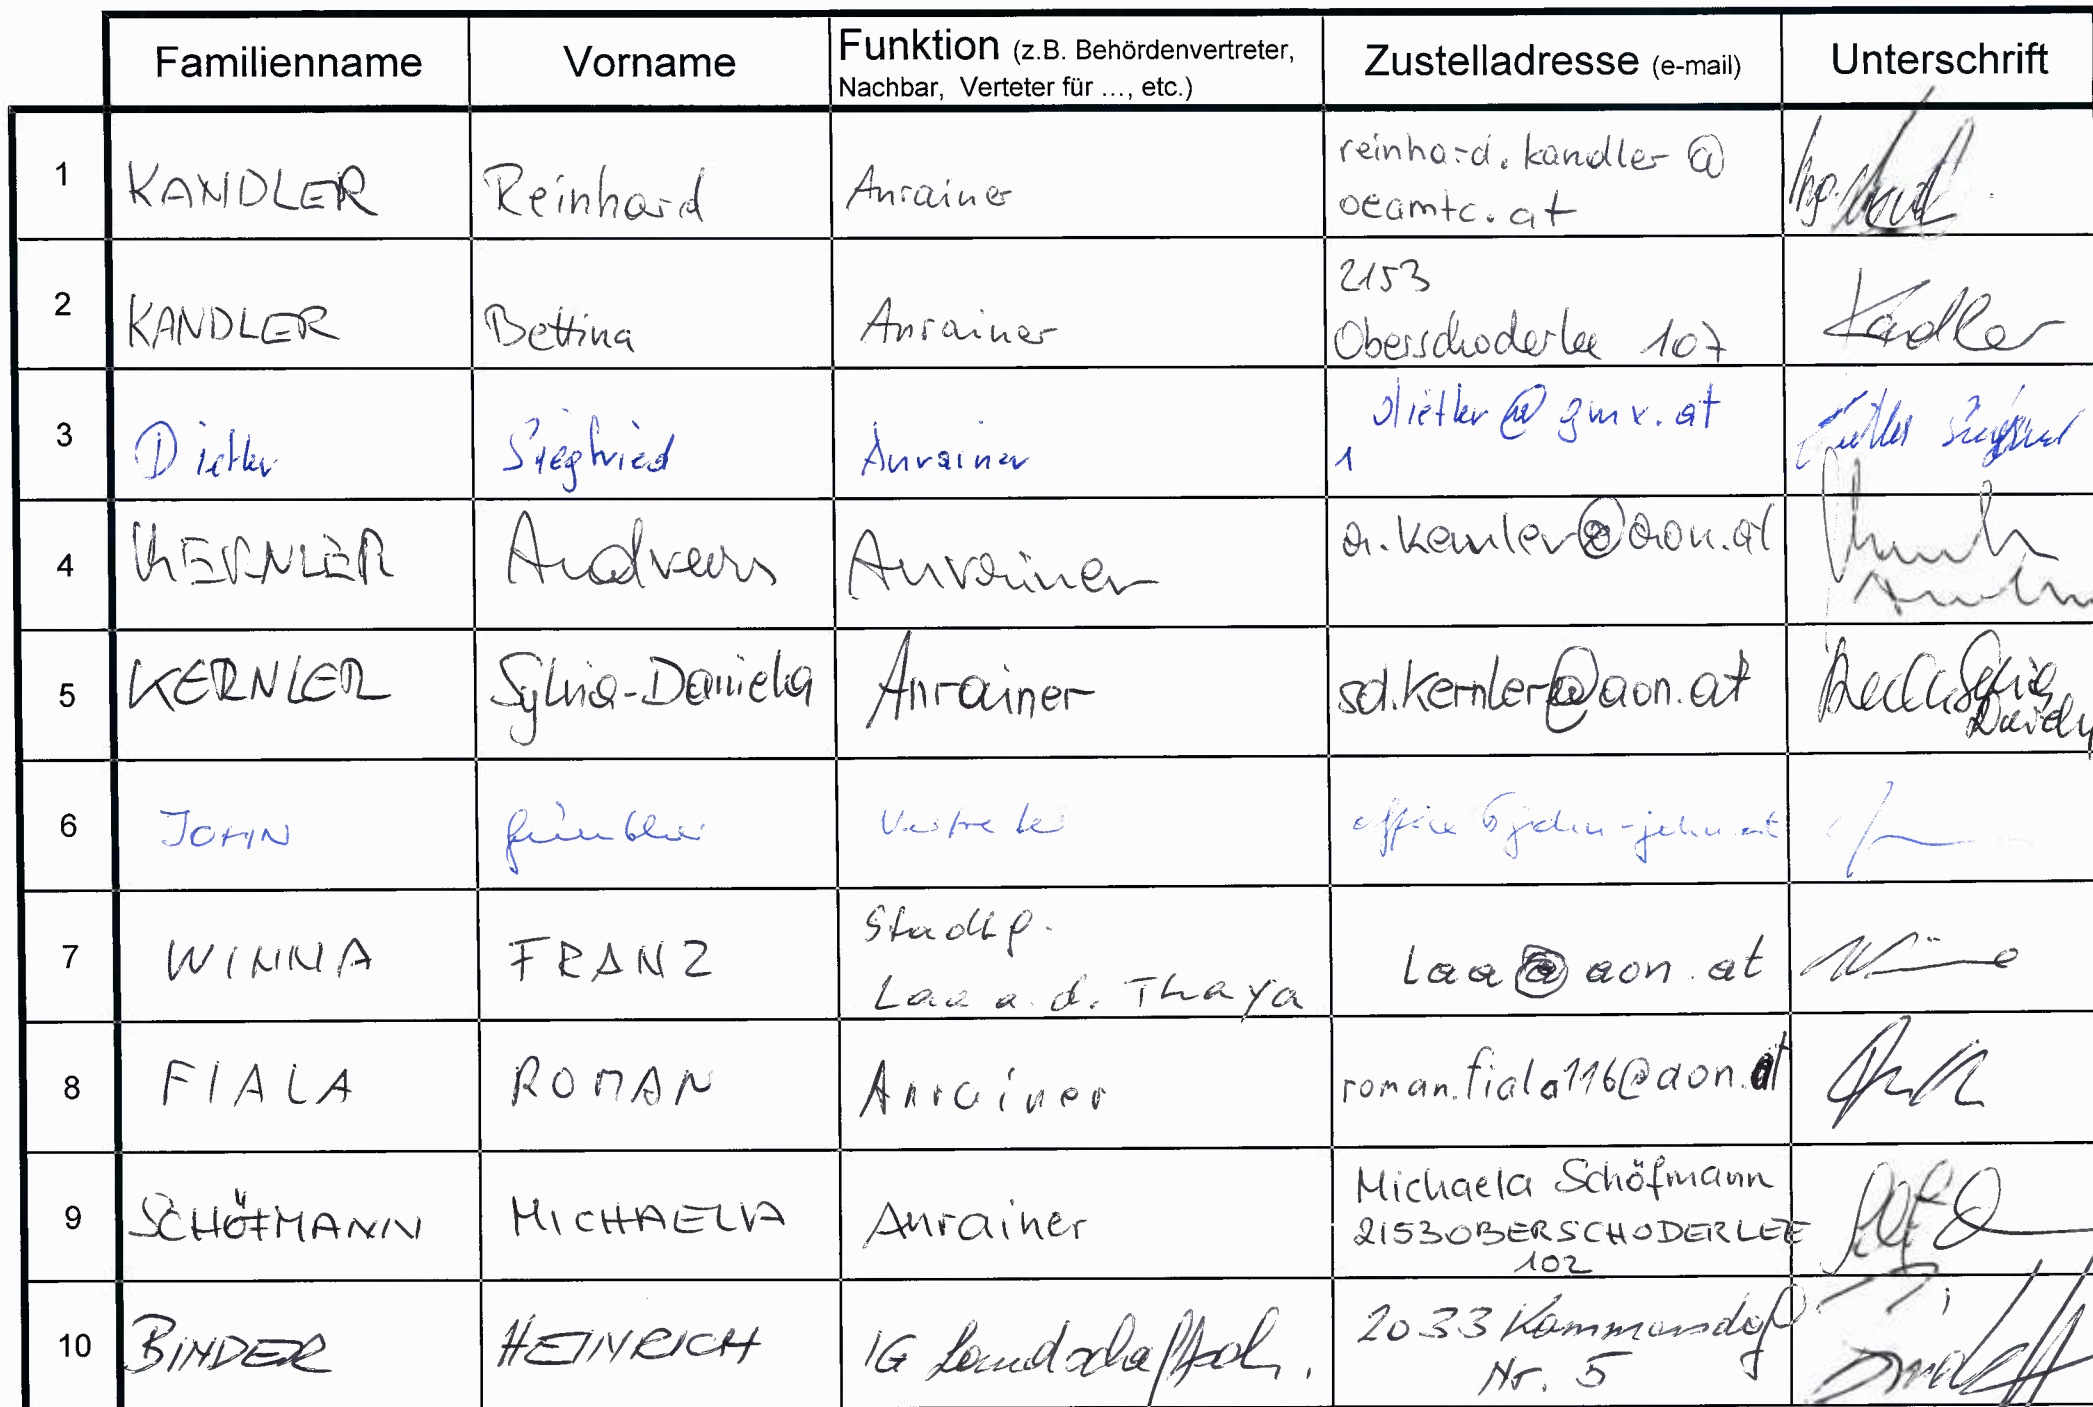 Familienname Vorname Funktion (z.B. Behördenvertreter, Nachbar, Verteter für ..., etc.) Zustelladresse (e-mail) Unterschrift
1 KANDLER Reinhard Anrainer reinhard.kandler @
oeamtc.at
2 KANDLER Bettina Anrainer 2153
Oberschoderlee 107 Kandler
3 Dietler Siegfried Anrainer dietler @ gmx.at
1
4 KERNLER Andreas Anrainer a.kernler@aon.at
5 KERNLER Sylvia-Daniela Anrainer sd.kernler@aon.at
6 JOHN Vertreter
7 WINNA FRANZ Stadtg.
Laa a. d. Thaya Laa@aon.at
8 FIALA ROMAN Anrainer roman.fiala116@aon.at
9 SCHÖFMANN MICHAELA Anrainer Michaela Schöfmann
2153 OBERSCHODERLEE
102
10 BINDER HEINRICH IG Landschaftsch. 2033 Kammersdorf
Nr. 5